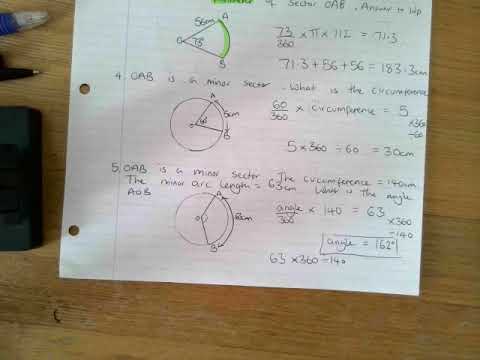 of Sector OAB. Answer to 1dp
56cm A
O 73° B
73/360 × π × 112 = 71.3
71.3 + 56 + 56 = 183.3cm
4. OAB is a minor sector. What is the circumference
A
O 60° 5cm
B
60/360 × circumference = 5
×360
÷60
5 × 360 ÷ 60 = 30cm
5. OAB is a minor sector. The circumference = 140cm.
The minor arc length = 63cm What is the angle
AOB
A
O 63cm
B
angle/360 × 140 = 63
×360
÷140
angle = 162°
63 × 360 ÷ 140